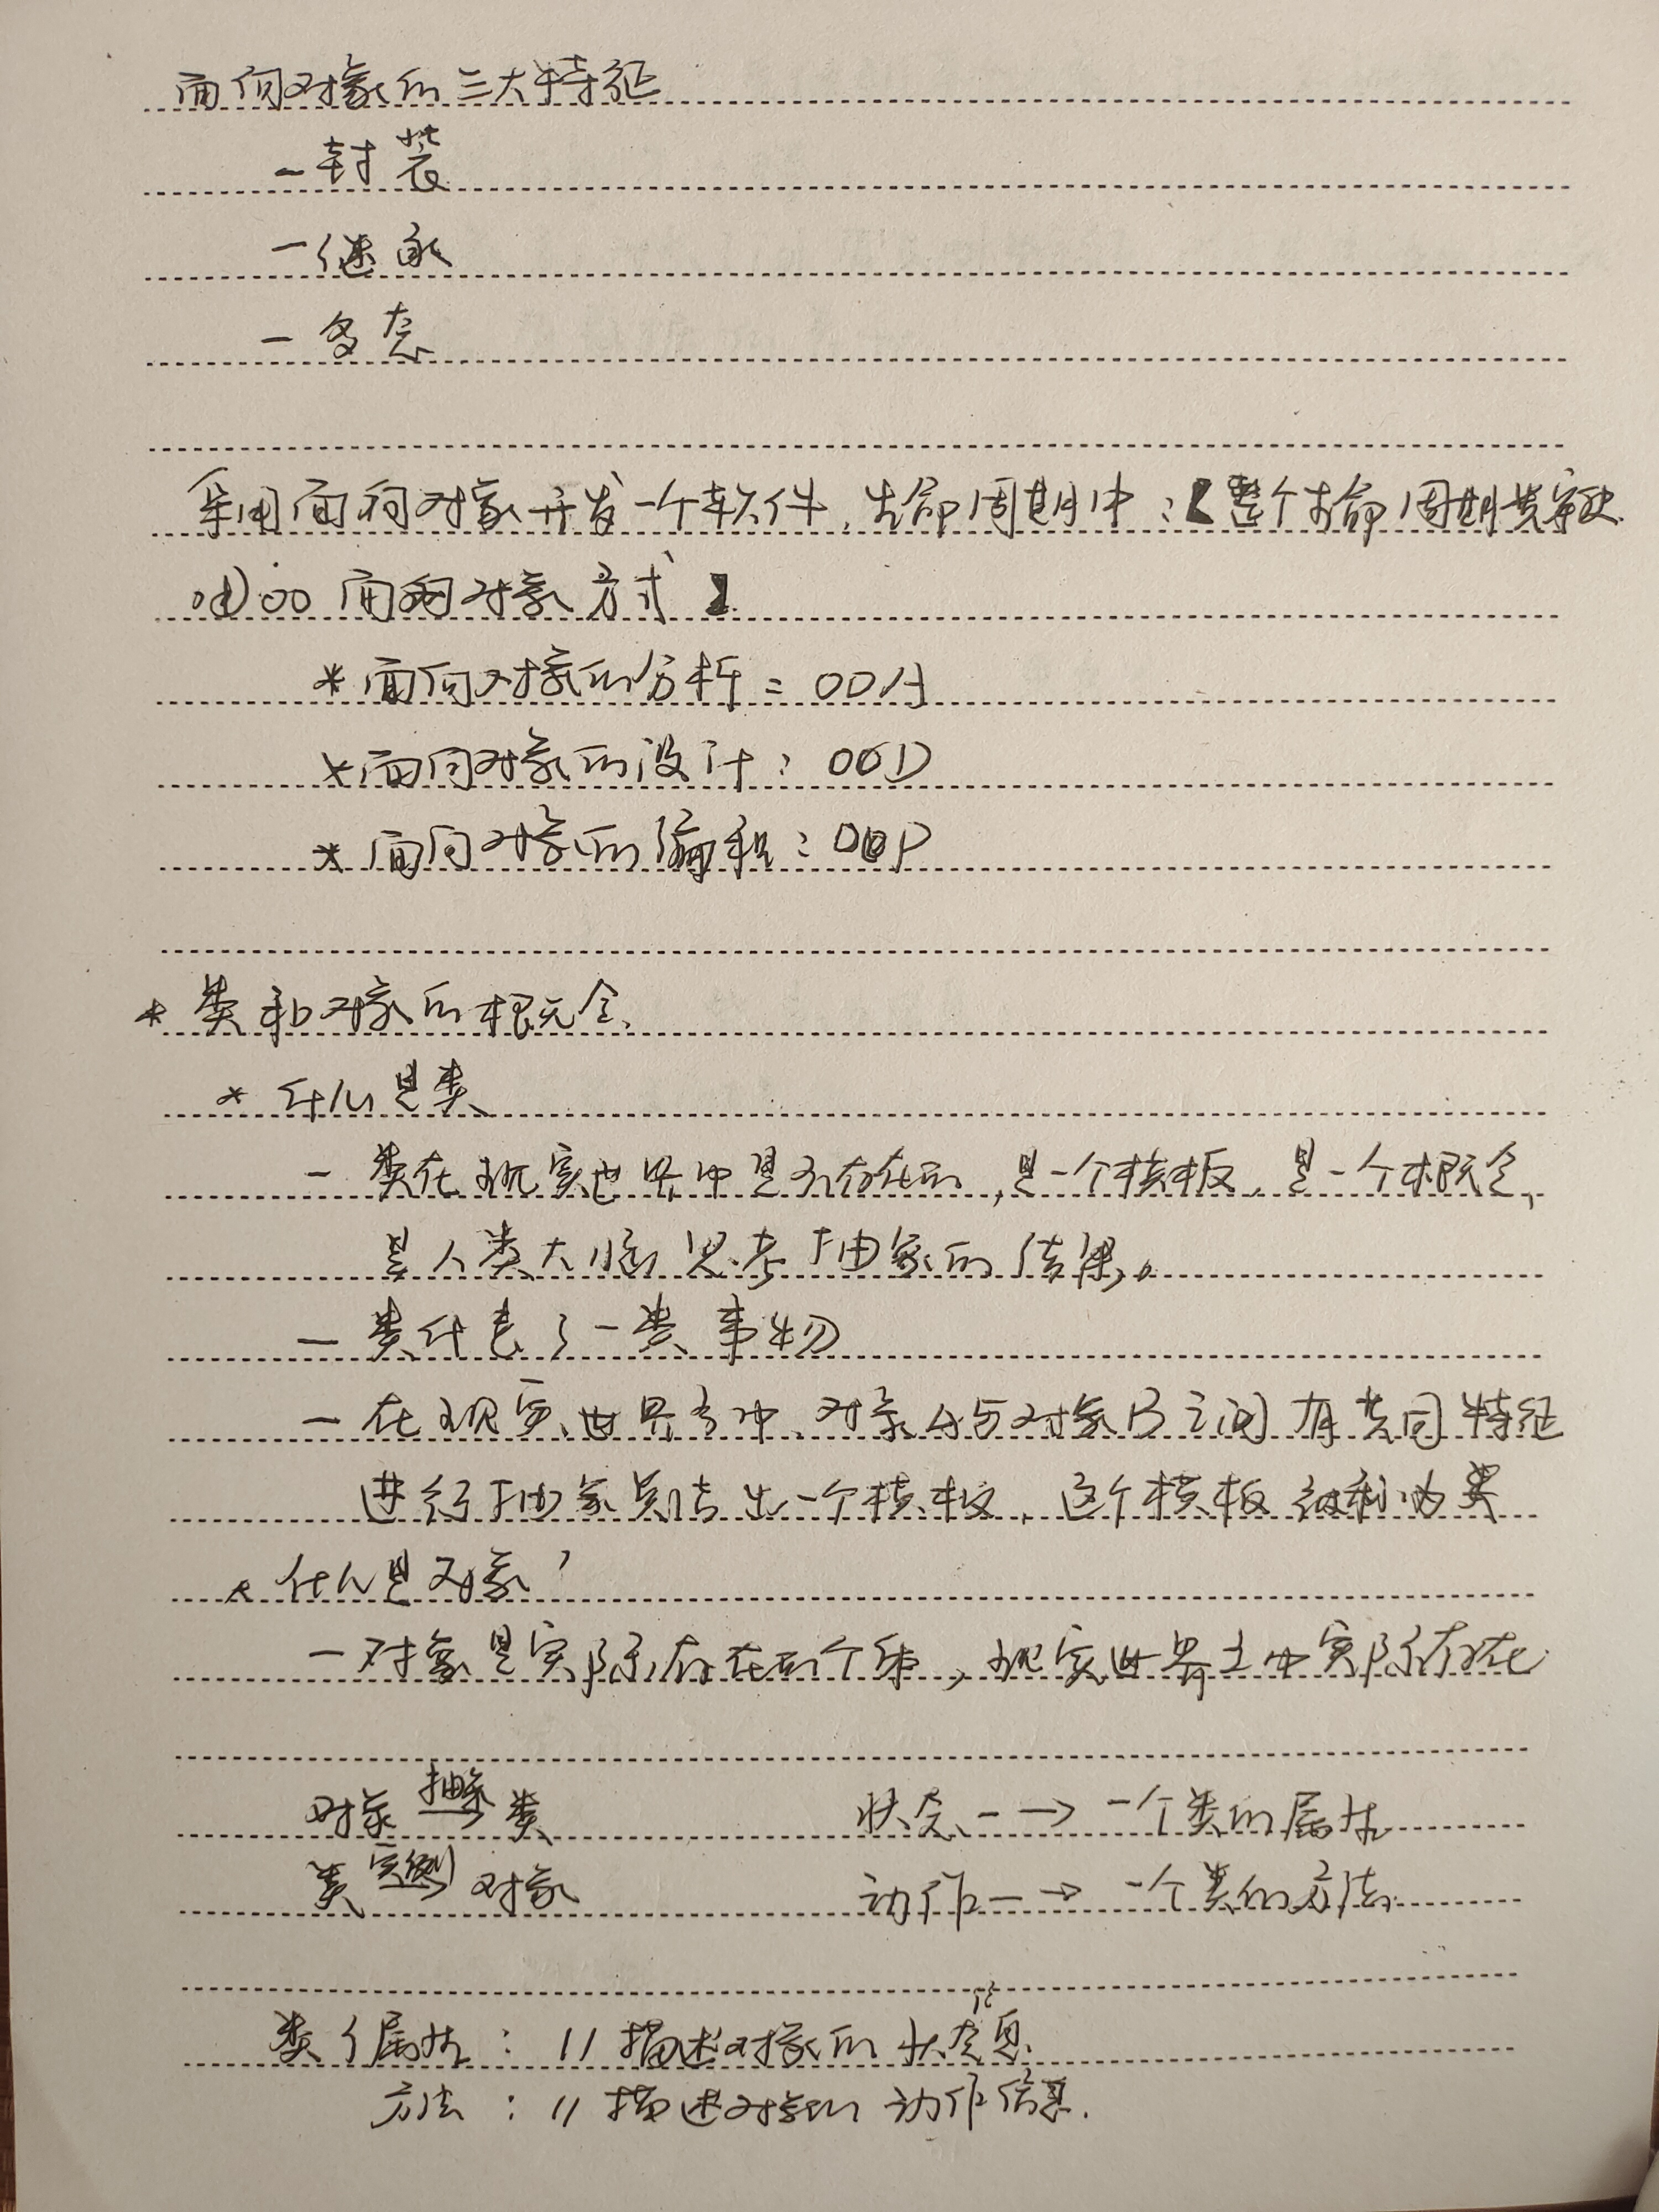 面向对象的三大特征
- 封装
- 继承
- 多态
采用面向对象开发一个软件，生命周期中：【整个生命周期贯穿
OO 面向对象方式】
* 面向对象的分析：OOA
* 面向对象的设计：OOD
* 面向对象的编程：OOP
* 类和对象的概念
* 什么是类
- 类在现实世界中是不存在的，是一个模板，是一个概念，
是人类大脑思考抽象的结果。
- 类代表了一类事物
- 在现实世界当中，对象A与对象B之间有共同特征
进行抽象总结出一个模板，这个模板被称为类
* 什么是对象？
- 对象是实际存在的个体，现实世界当中实际存在
对象 抽象→ 类 状态 -→ 一个类的属性
类 实例→ 对象 动作 -→ 一个类的方法
类{属性： // 描述对象的状态信息
方法： // 描述对象的动作信息.